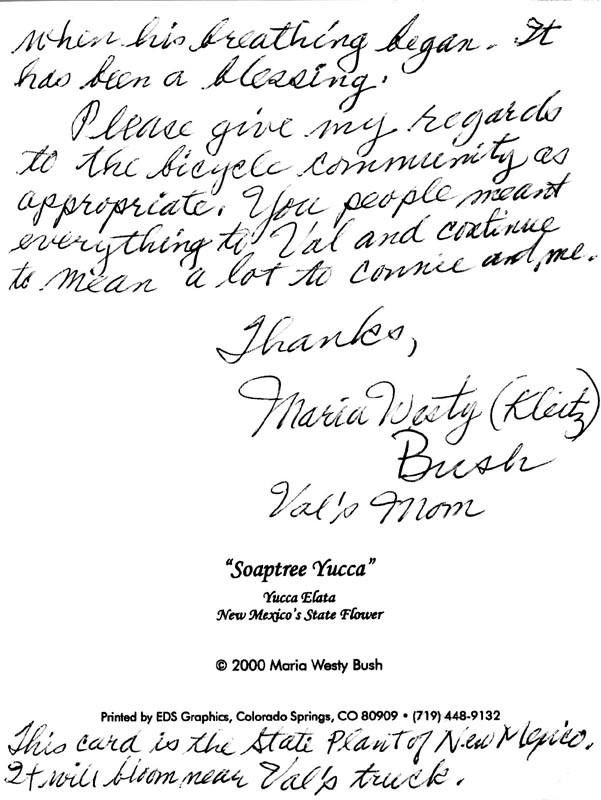 when his breathing began. It
has been a blessing.
Please give my regards
to the bicycle community as
appropriate. You people meant
everything to Val and continue
to mean a lot to Connie and me.
Thanks,
Maria Westy (Kleitz)
Bush
Val's Mom
"Soaptree Yucca"
Yucca Elata
New Mexico's State Flower
© 2000 Maria Westy Bush
Printed by EDS Graphics, Colorado Springs, CO 80909 • (719) 448-9132
This card is the State Plant of New Mexico.
It will bloom near Val's truck.